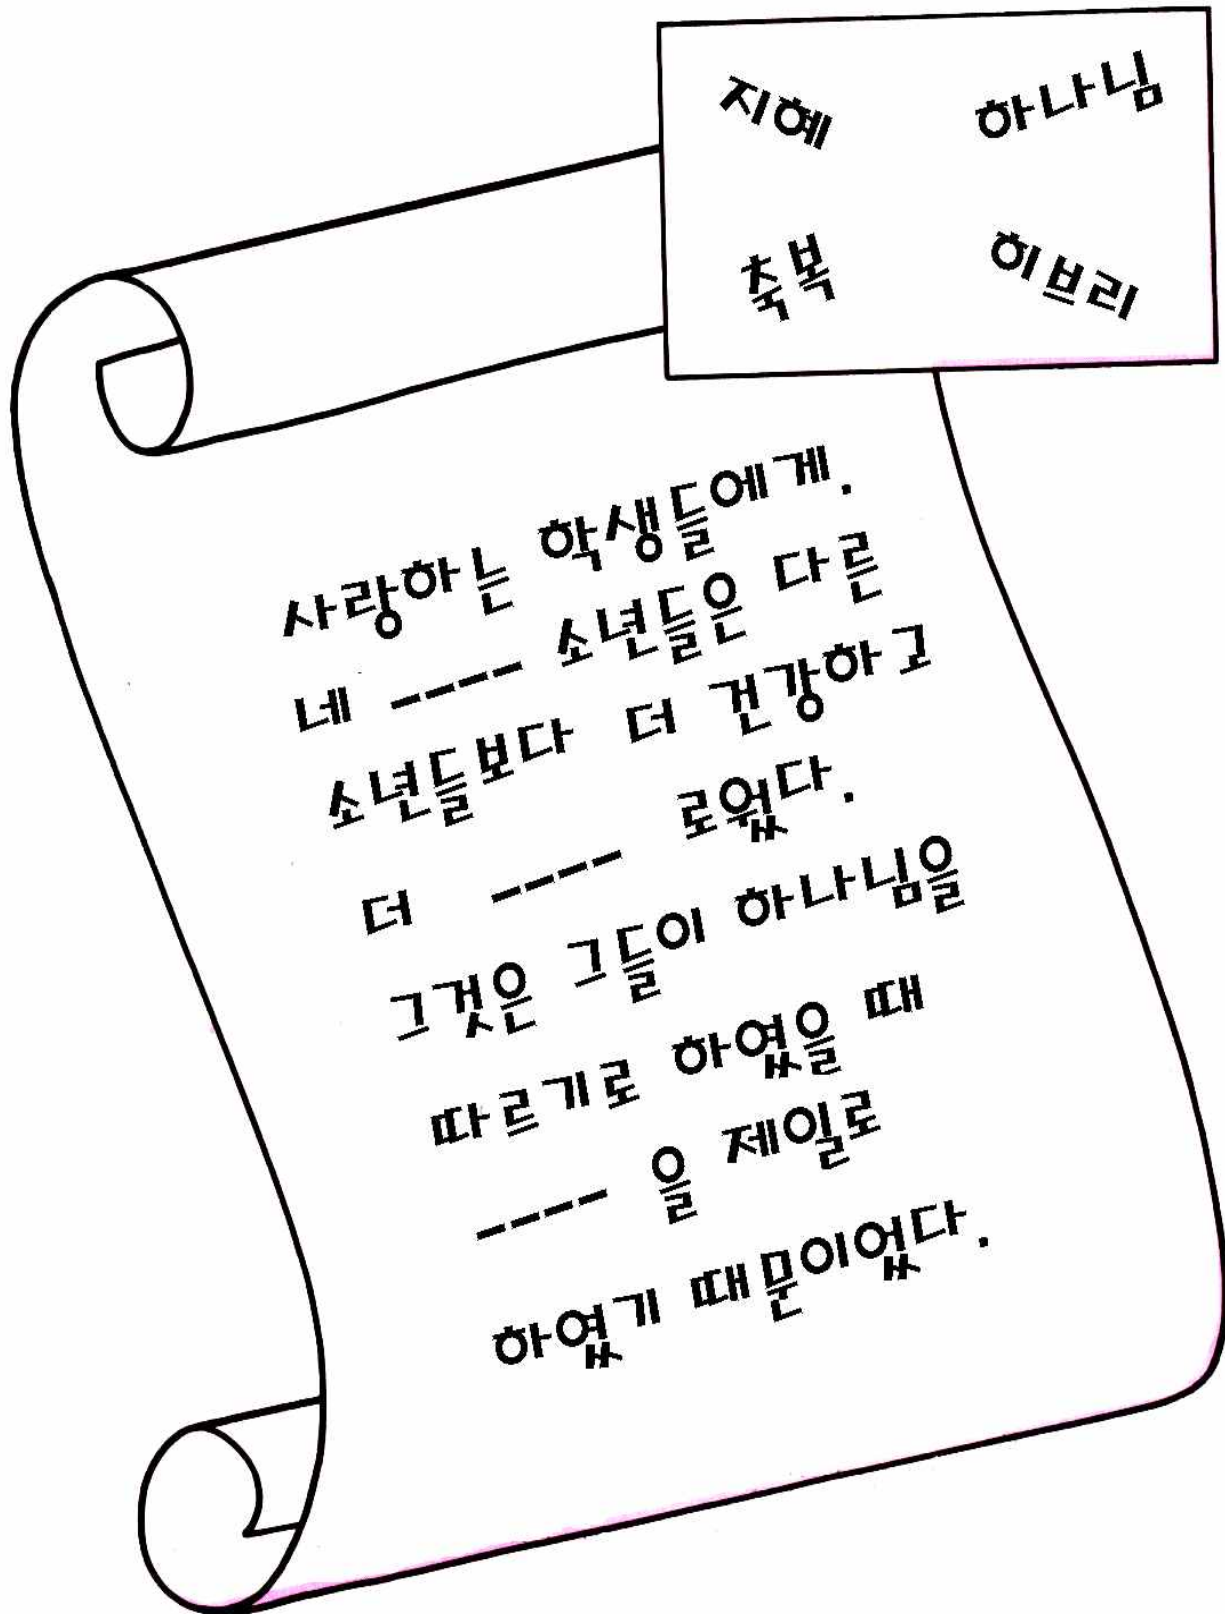 지혜 하나님
축복 히브리
사랑하는 학생들에게.
네 ---- 소년들은 다른
소년들보다 더 건강하고
더 ---- 로웠다.
그것은 그들이 하나님을
따르기로 하였을 때
---- 을 제일로
하였기 때문이었다.